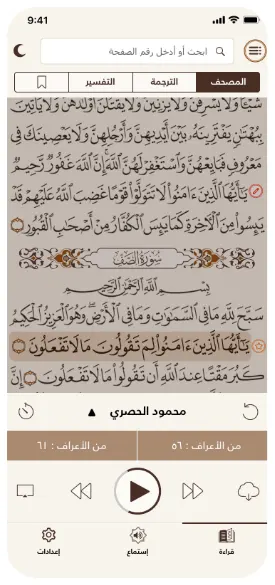 9:41
ابحث أو أدخل رقم الصفحة
المصحف
الترجمة
التفسير
شَيْـًٔا وَلَا يَسْرِقْنَ وَلَا يَزْنِينَ وَلَا يَقْتُلْنَ أَوْلَٰدَهُنَّ وَلَا يَأْتِينَ
بِبُهْتَٰنٍ يَفْتَرِينَهُۥ بَيْنَ أَيْدِيهِنَّ وَأَرْجُلِهِنَّ وَلَا يَعْصِينَكَ فِى
مَعْرُوفٍ فَبَايِعْهُنَّ وَٱسْتَغْفِرْ لَهُنَّ ٱللَّهَ إِنَّ ٱللَّهَ غَفُورٌ رَّحِيمٌ
يَٰٓأَيُّهَا ٱلَّذِينَ ءَامَنُوا۟ لَا تَتَوَلَّوْا۟ قَوْمًا غَضِبَ ٱللَّهُ عَلَيْهِمْ قَدْ
يَئِسُوا۟ مِنَ ٱلْءَاخِرَةِ كَمَا يَئِسَ ٱلْكُفَّارُ مِنْ أَصْحَٰبِ ٱلْقُبُورِ
سُورَةُ الصَّفِّ
بِسْمِ ٱللَّهِ ٱلرَّحْمَٰنِ ٱلرَّحِيمِ
سَبَّحَ لِلَّهِ مَا فِى ٱلسَّمَٰوَٰتِ وَمَا فِى ٱلْأَرْضِ وَهُوَ ٱلْعَزِيزُ ٱلْحَكِيمُ
يَٰٓأَيُّهَا ٱلَّذِينَ ءَامَنُوا۟ لِمَ تَقُولُونَ مَا لَا تَفْعَلُونَ
كَبُرَ مَقْتًا عِندَ ٱللَّهِ أَن تَقُولُوا۟ مَا لَا تَفْعَلُونَ إِنَّ
محمود الحصري
من الأعراف : ٥٦
من الأعراف : ٦١
قراءة
إستماع
إعدادات